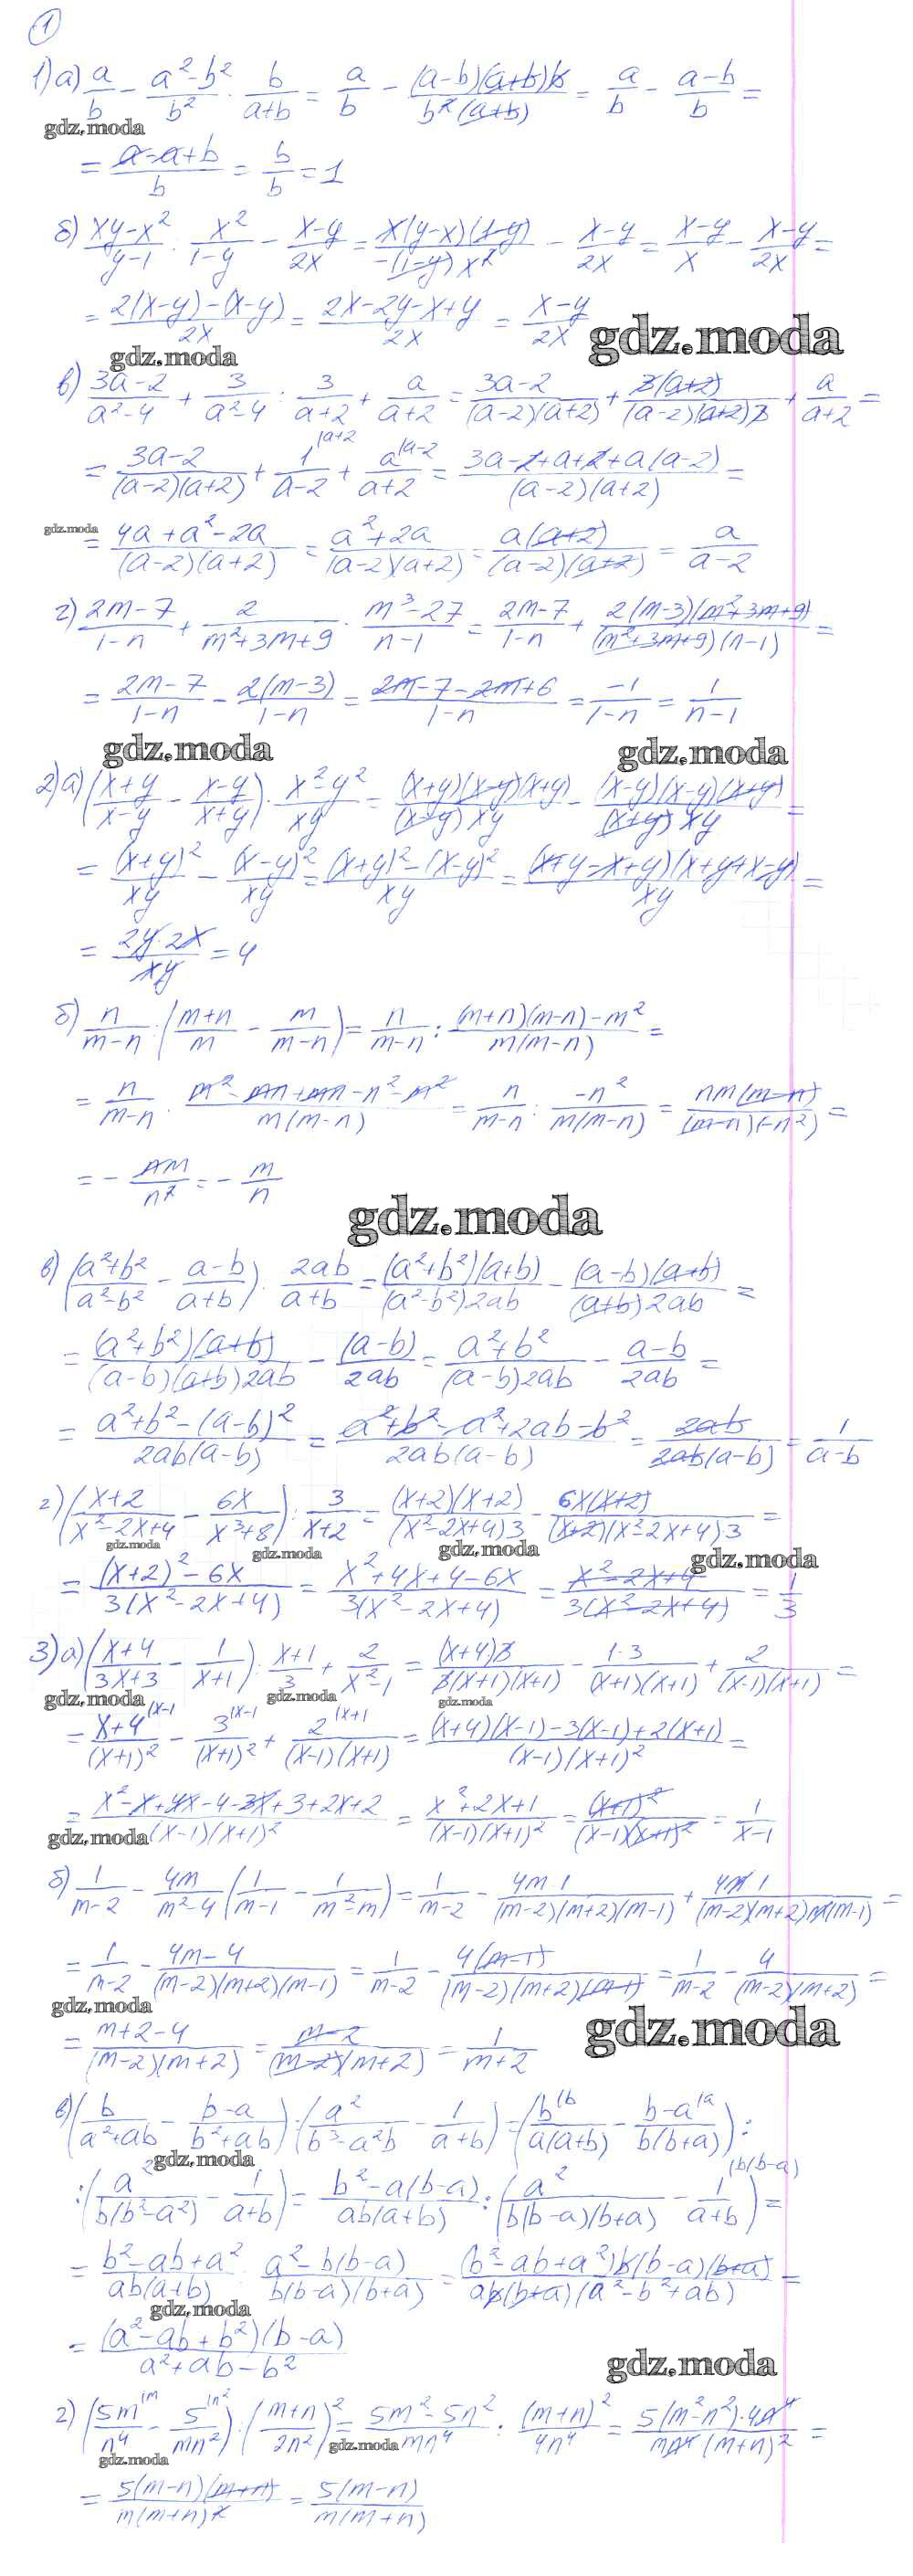 1
1) а) a/b - (a²-b²)/b² · b/(a+b) = a/b - ((a-b)(a+b)b)/(b²(a+b)) = a/b - (a-b)/b =
gdz.moda
= (a-a+b)/b = b/b = 1
б) (xy-x²)/(y-1) · x²/(1-y) - (x-y)/2x = (x(y-x)(1-y))/(-(1-y)x²) - (x-y)/2x = (x-y)/x - (x-y)/2x =
= (2(x-y)-(x-y))/2x = (2x-2y-x+y)/2x = (x-y)/2x
gdz.moda
gdz.moda
в) (3a-2)/(a²-4) + 3/(a²-4) : 3/(a+2) + a/(a+2) = (3a-2)/((a-2)(a+2)) + (3(a+2))/((a-2)(a+2)3) + a/(a+2) =
= (3a-2)/((a-2)(a+2)) + 1/(a-2) |a+2 + a/(a+2) |a-2 = (3a-2+a+2+a(a-2))/((a-2)(a+2)) =
gdz.moda
= (4a+a²-2a)/((a-2)(a+2)) = (a²+2a)/((a-2)(a+2)) = (a(a+2))/((a-2)(a+2)) = a/(a-2)
г) (2m-7)/(1-n) + 2/(m²+3m+9) · (m³-27)/(n-1) = (2m-7)/(1-n) + (2(m-3)(m²+3m+9))/((m²+3m+9)(n-1)) =
= (2m-7)/(1-n) - (2(m-3))/(1-n) = (2m-7-2m+6)/(1-n) = -1/(1-n) = 1/(n-1)
gdz.moda
gdz.moda
2) а) ((x+y)/(x-y) - (x-y)/(x+y)) · (x²-y²)/xy = ((x+y)(x-y)(x+y))/((x-y)xy) - ((x-y)(x-y)(x+y))/((x+y)xy) =
= (x+y)²/xy - (x-y)²/xy = ((x+y)²-(x-y)²)/xy = ((x+y-x+y)(x+y+x-y))/xy =
= (2y·2x)/xy = 4
б) n/(m-n) : ((m+n)/m - m/(m-n)) = n/(m-n) : ((m+n)(m-n)-m²)/(m(m-n)) =
= n/(m-n) · (m²-mn+mn-n²-m²)/(m(m-n)) = n/(m-n) : -n²/(m(m-n)) = (nm(m-n))/((m-n)(-n²)) =
= - nm/n² = - m/n
gdz.moda
в) ((a²+b²)/(a²-b²) - (a-b)/(a+b)) : 2ab/(a+b) = ((a²+b²)(a+b))/((a²-b²)2ab) - ((a-b)(a+b))/((a+b)2ab) =
= ((a²+b²)(a+b))/((a-b)(a+b)2ab) - (a-b)/2ab = (a²+b²)/((a-b)2ab) - (a-b)/2ab =
= (a²+b²-(a-b)²)/(2ab(a-b)) = (a²+b²-a²+2ab-b²)/(2ab(a-b)) = 2ab/(2ab(a-b)) = 1/(a-b)
г) ((x+2)/(x²-2x+4) - 6x/(x³+8)) : 3/(x+2) = ((x+2)(x+2))/((x²-2x+4)3) - (6x(x+2))/((x+2)(x²-2x+4)·3) =
gdz.moda
gdz.moda
gdz.moda
gdz.moda
= ((x+2)²-6x)/(3(x²-2x+4)) = (x²+4x+4-6x)/(3(x²-2x+4)) = (x²-2x+4)/(3(x²-2x+4)) = 1/3
3) а) ((x+4)/(3x+3) - 1/(x+1)) : (x+1)/3 + 2/(x²-1) = ((x+4)·3)/(3(x+1)(x+1)) - 1·3/((x+1)(x+1)) + 2/((x-1)(x+1)) =
gdz.moda
gdz.moda
gdz.moda
= (x+4)/(x+1)² |x-1 - 3/(x+1)² |x-1 + 2/((x-1)(x+1)) |x+1 = ((x+4)(x-1)-3(x-1)+2(x+1))/((x-1)(x+1)²) =
= (x²-x+4x-4-3x+3+2x+2)/((x-1)(x+1)²) = (x²+2x+1)/((x-1)(x+1)²) = (x+1)²/((x-1)(x+1)²) = 1/(x-1)
gdz.moda
б) 1/(m-2) - 4m/(m²-4) (1/(m-1) - 1/(m²-m)) = 1/(m-2) - 4m·1/((m-2)(m+2)(m-1)) + 4m·1/((m-2)(m+2)m(m-1)) =
= 1/(m-2) - (4m-4)/((m-2)(m+2)(m-1)) = 1/(m-2) - (4(m-1))/((m-2)(m+2)(m-1)) = 1/(m-2) - 4/((m-2)(m+2)) =
gdz.moda
= (m+2-4)/((m-2)(m+2)) = (m-2)/((m-2)(m+2)) = 1/(m+2)
gdz.moda
в) (b/(a²+ab) - (b-a)/(b²+ab)) : (a²/(b³-a²b) - 1/(a+b)) = (b/(a(a+b)) |b - (b-a)/(b(b+a)) |a) :
gdz.moda
: (a²/(b(b²-a²)) - 1/(a+b)) = (b²-a(b-a))/(ab(a+b)) : (a²/(b(b-a)(b+a)) - 1/(a+b) |b(b-a)) =
= (b²-ab+a²)/(ab(a+b)) : (a²-b(b-a))/(b(b-a)(b+a)) = ((b²-ab+a²)b(b-a)(b+a))/(ab(b+a)(a²-b²+ab)) =
gdz.moda
= ((a²-ab+b²)(b-a))/(a²+ab-b²)
gdz.moda
г) (5m/n⁴ |m - 5/mn² |n²) : ((m+n)/2n²)² = (5m²-5n²)/mn⁴ : (m+n)²/4n⁴ = (5(m²-n²)·4n⁴)/(mn⁴(m+n)²) =
gdz.moda
gdz.moda
= (5(m-n)(m+n))/(m(m+n)²) = (5(m-n))/(m(m+n))